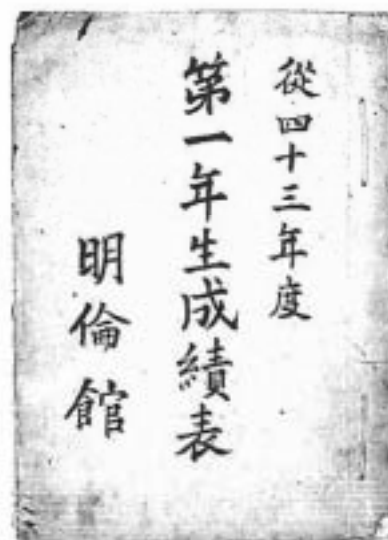 從四十三年度
第一年生成績表
明倫館